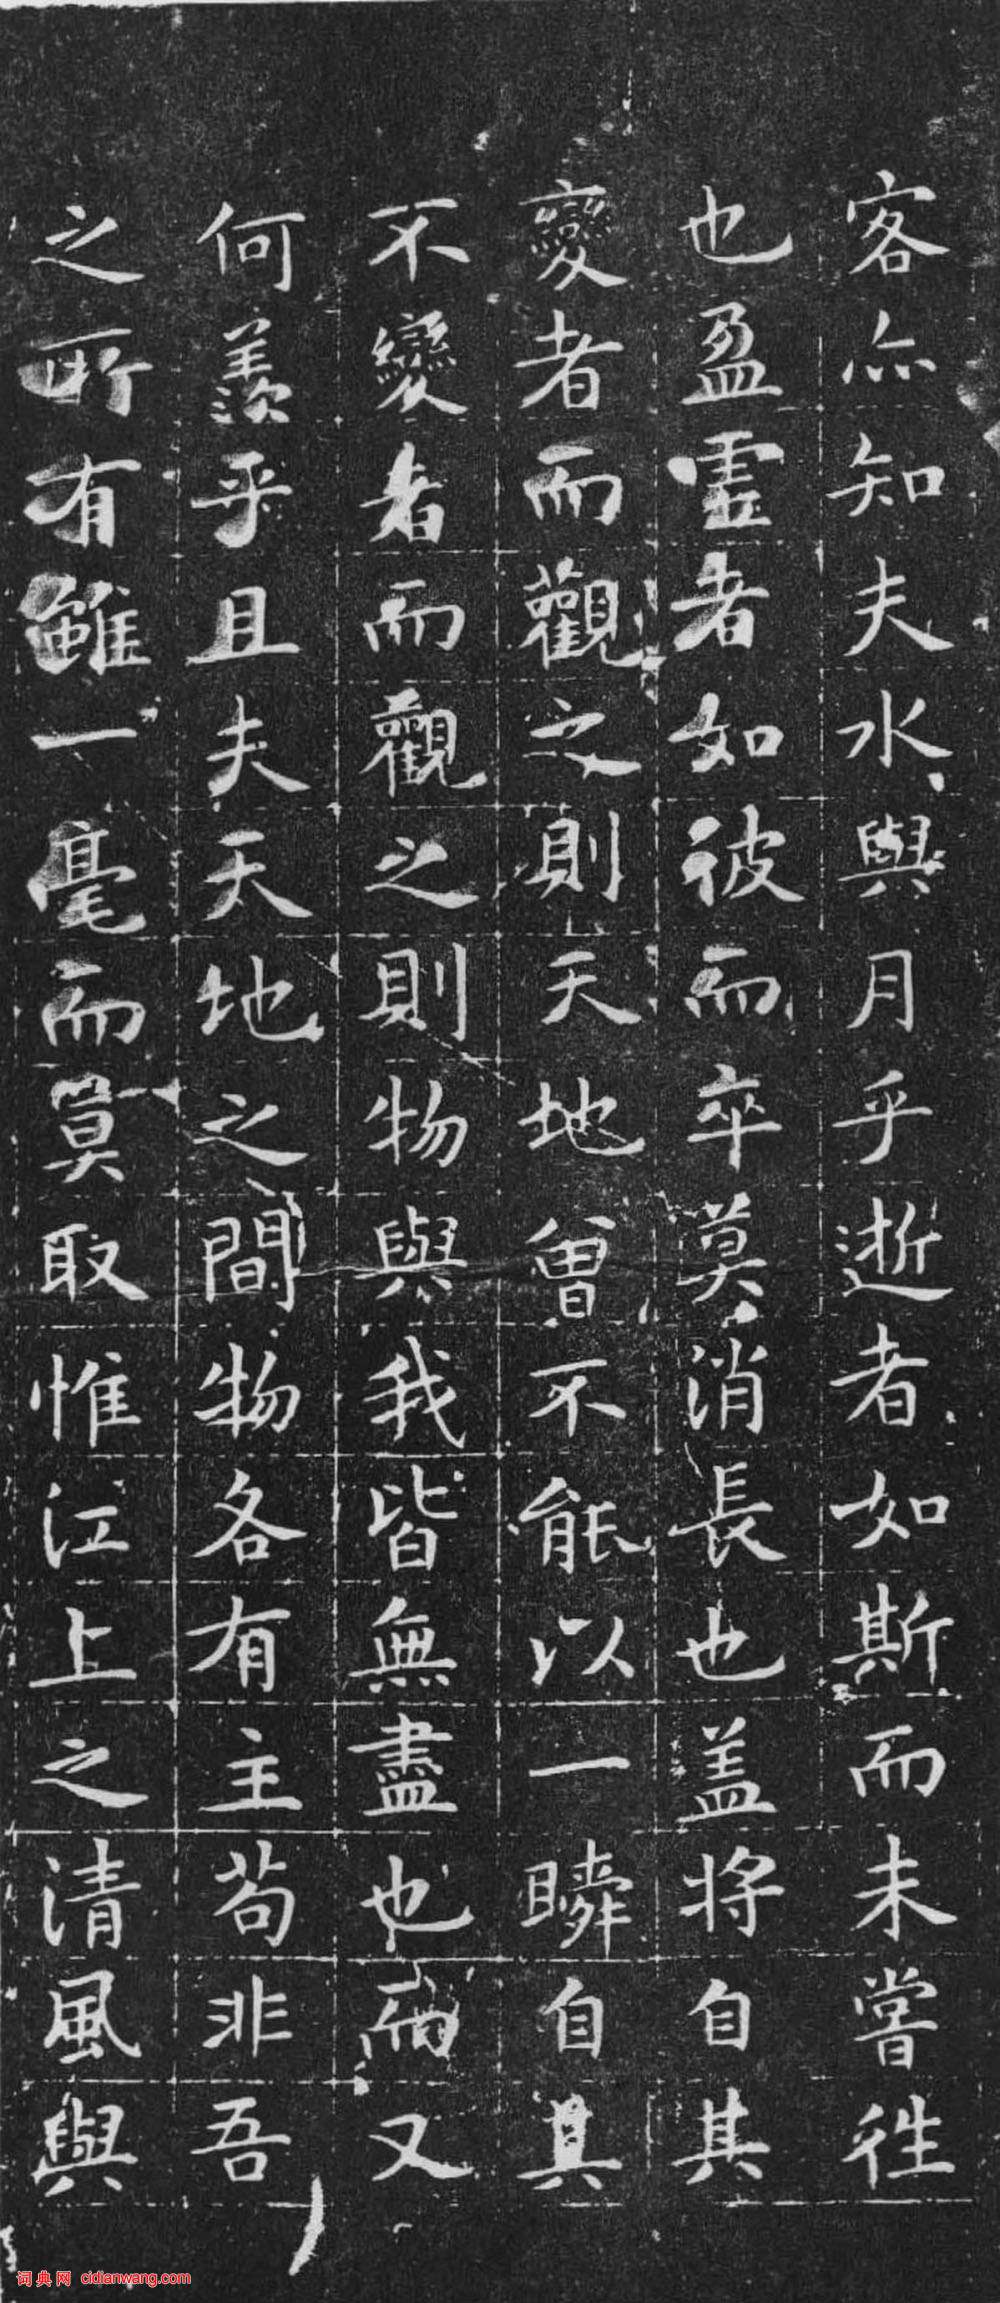 客亦知夫水與月乎逝者如斯而未嘗往
也盈虛者如彼而卒莫消長也盖將自其
變者而觀之則天地曾不能以一瞬自其
不變者而觀之則物與我皆無盡也而又
何羨乎且夫天地之間物各有主苟非吾
之所有雖一毫而莫取惟江上之清風與
词典网 cidianwang.com